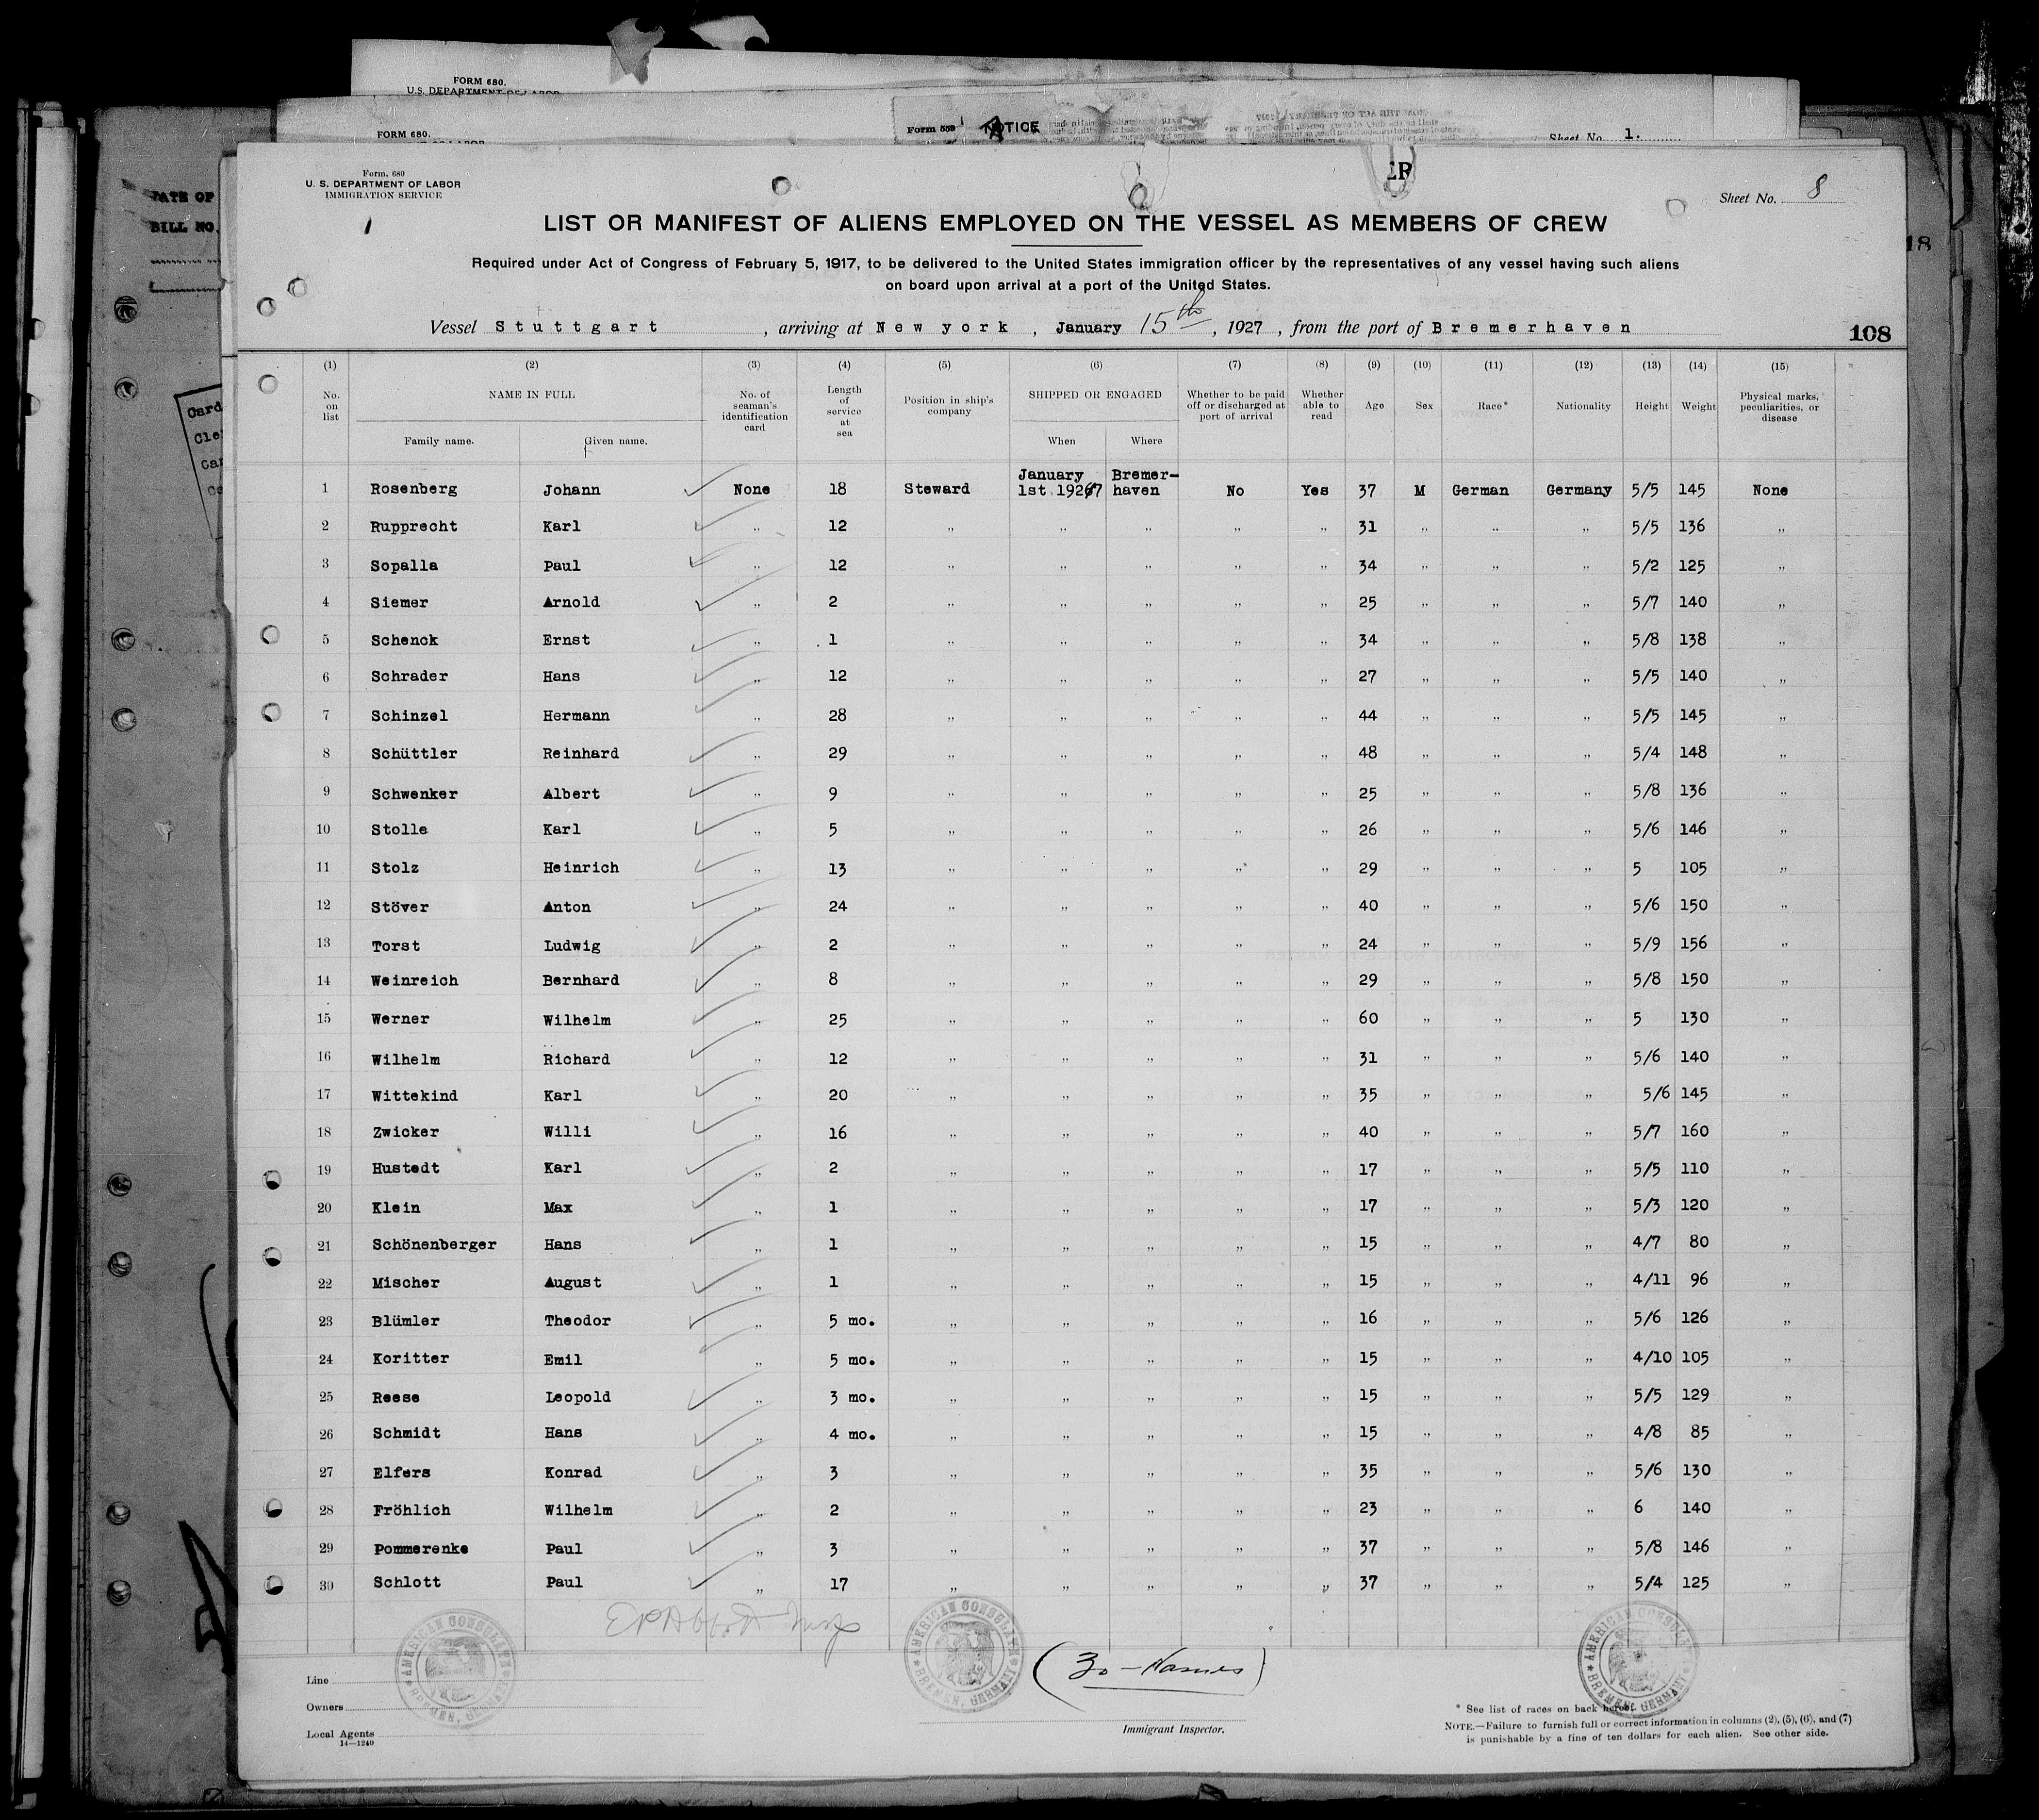 FORM 680.
U.S. DEPARTMENT OF LABOR
FORM 680.
Form 559
NOTICE
Sheet No. 1.
DATE OF
BILL NO.
Card
Form. 680
U. S. DEPARTMENT OF LABOR
IMMIGRATION SERVICE
Sheet No. 8
LIST OR MANIFEST OF ALIENS EMPLOYED ON THE VESSEL AS MEMBERS OF CREW
18
Required under Act of Congress of February 5, 1917, to be delivered to the United States immigration officer by the representatives of any vessel having such aliens
on board upon arrival at a port of the United States.
Vessel Stuttgart, arriving at New york, January 15th, 1927, from the port of Bremerhaven
108
(1) (2) (3) (4) (5) (6) (7) (8) (9) (10) (11) (12) (13) (14) (15)
No. on list NAME IN FULL Family name. Given name. No. of seaman's identification card Length of service at sea Position in ship's company SHIPPED OR ENGAGED When Where Whether to be paid off or discharged at port of arrival Whether able to read Age Sex Race* Nationality Height Weight Physical marks, peculiarities, or disease
1 Rosenberg Johann None 18 Steward January 1st.1927 Bremer-haven No Yes 37 M German Germany 5/5 145 None
2 Rupprecht Karl " 12 " " " " " 31 " " " 5/5 136 "
3 Sopalla Paul " 12 " " " " " 34 " " " 5/2 125 "
4 Siemer Arnold " 2 " " " " " 25 " " " 5/7 140 "
5 Schenck Ernst " 1 " " " " " 34 " " " 5/8 138 "
6 Schrader Hans " 12 " " " " " 27 " " " 5/5 140 "
7 Schinzel Hermann " 28 " " " " " 44 " " " 5/5 145 "
8 Schüttler Reinhard " 29 " " " " " 48 " " " 5/4 148 "
9 Schwenker Albert " 9 " " " " " 25 " " " 5/8 136 "
10 Stolle Karl " 5 " " " " " 26 " " " 5/6 146 "
11 Stolz Heinrich " 13 " " " " " 29 " " " 5 105 "
12 Stöver Anton " 24 " " " " " 40 " " " 5/6 150 "
13 Torst Ludwig " 2 " " " " " 24 " " " 5/9 156 "
14 Weinreich Bernhard " 8 " " " " " 29 " " " 5/8 150 "
15 Werner Wilhelm " 25 " " " " " 60 " " " 5 130 "
16 Wilhelm Richard " 12 " " " " " 31 " " " 5/6 140 "
17 Wittekind Karl " 20 " " " " " 35 " " " 5/6 145 "
18 Zwicker Willi " 16 " " " " " 40 " " " 5/7 160 "
19 Hustedt Karl " 2 " " " " " 17 " " " 5/5 110 "
20 Klein Max " 1 " " " " " 17 " " " 5/3 120 "
21 Schönenberger Hans " 1 " " " " " 15 " " " 4/7 80 "
22 Mischer August " 1 " " " " " 15 " " " 4/11 96 "
23 Blümler Theodor " 5 mo. " " " " " 16 " " " 5/6 126 "
24 Koritter Emil " 5 mo. " " " " " 15 " " " 4/10 105 "
25 Reese Leopold " 3 mo. " " " " " 15 " " " 5/5 129 "
26 Schmidt Hans " 4 mo. " " " " " 15 " " " 4/8 85 "
27 Elfers Konrad " 3 " " " " " 35 " " " 5/6 130 "
28 Fröhlich Wilhelm " 2 " " " " " 23 " " " 6 140 "
29 Pommerenke Paul " 3 " " " " " 37 " " " 5/8 146 "
30 Schlott Paul " 17 " " " " " 37 " " " 5/4 125 "
AMERICAN CONSULATE BREMEN, GERMANY
AMERICAN CONSULATE BREMEN, GERMANY
AMERICAN CONSULATE BREMEN, GERMANY
(30 - Names)
Line
Owners
Local Agents
14—1240
Immigrant Inspector.
* See list of races on back hereof.
NOTE.—Failure to furnish full or correct information in columns (2), (5), (6), and (7)
is punishable by a fine of ten dollars for each alien. See other side.